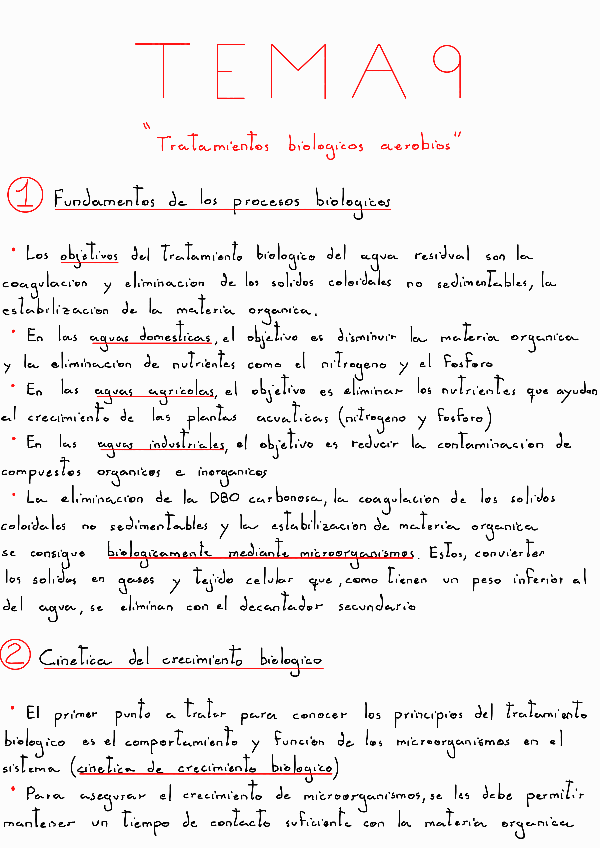 TEMA 9
"Tratamientos biologicos aerobios"
1 Fundamentos de los procesos biologicos
• Los objetivos del tratamiento biologico del agua residual son la
coagulacion y eliminacion de los solidos coloidales no sedimentables, la
estabilizacion de la materia organica.
• En las aguas domesticas, el objetivo es disminuir la materia organica
y la eliminacion de nutrientes como el nitrogeno y el fosforo
• En las aguas agricolas, el objetivo es eliminar los nutrientes que ayudan
al crecimiento de las plantas acuaticas (nitrogeno y fosforo)
• En las aguas industriales, el objetivo es reducir la contaminacion de
compuestos organicos e inorganicos
• La eliminacion de la DBO carbonosa, la coagulacion de los solidos
coloidales no sedimentables y la estabilizacion de materia organica
se consigue biologicamente mediante microorganismos. Estos, convierten
los solidos en gases y tejido celular que, como tienen un peso inferior al
del agua, se eliminan con el decantador secundario
2 Cinetica del crecimiento biologico
• El primer punto a tratar para conocer los principios del tratamiento
biologico es el comportamiento y funcion de los microorganismos en el
sistema (cinetica de crecimiento biologico)
• Para asegurar el crecimiento de microorganismos, se les debe permitir
mantener un tiempo de contacto suficiente con la materia organica